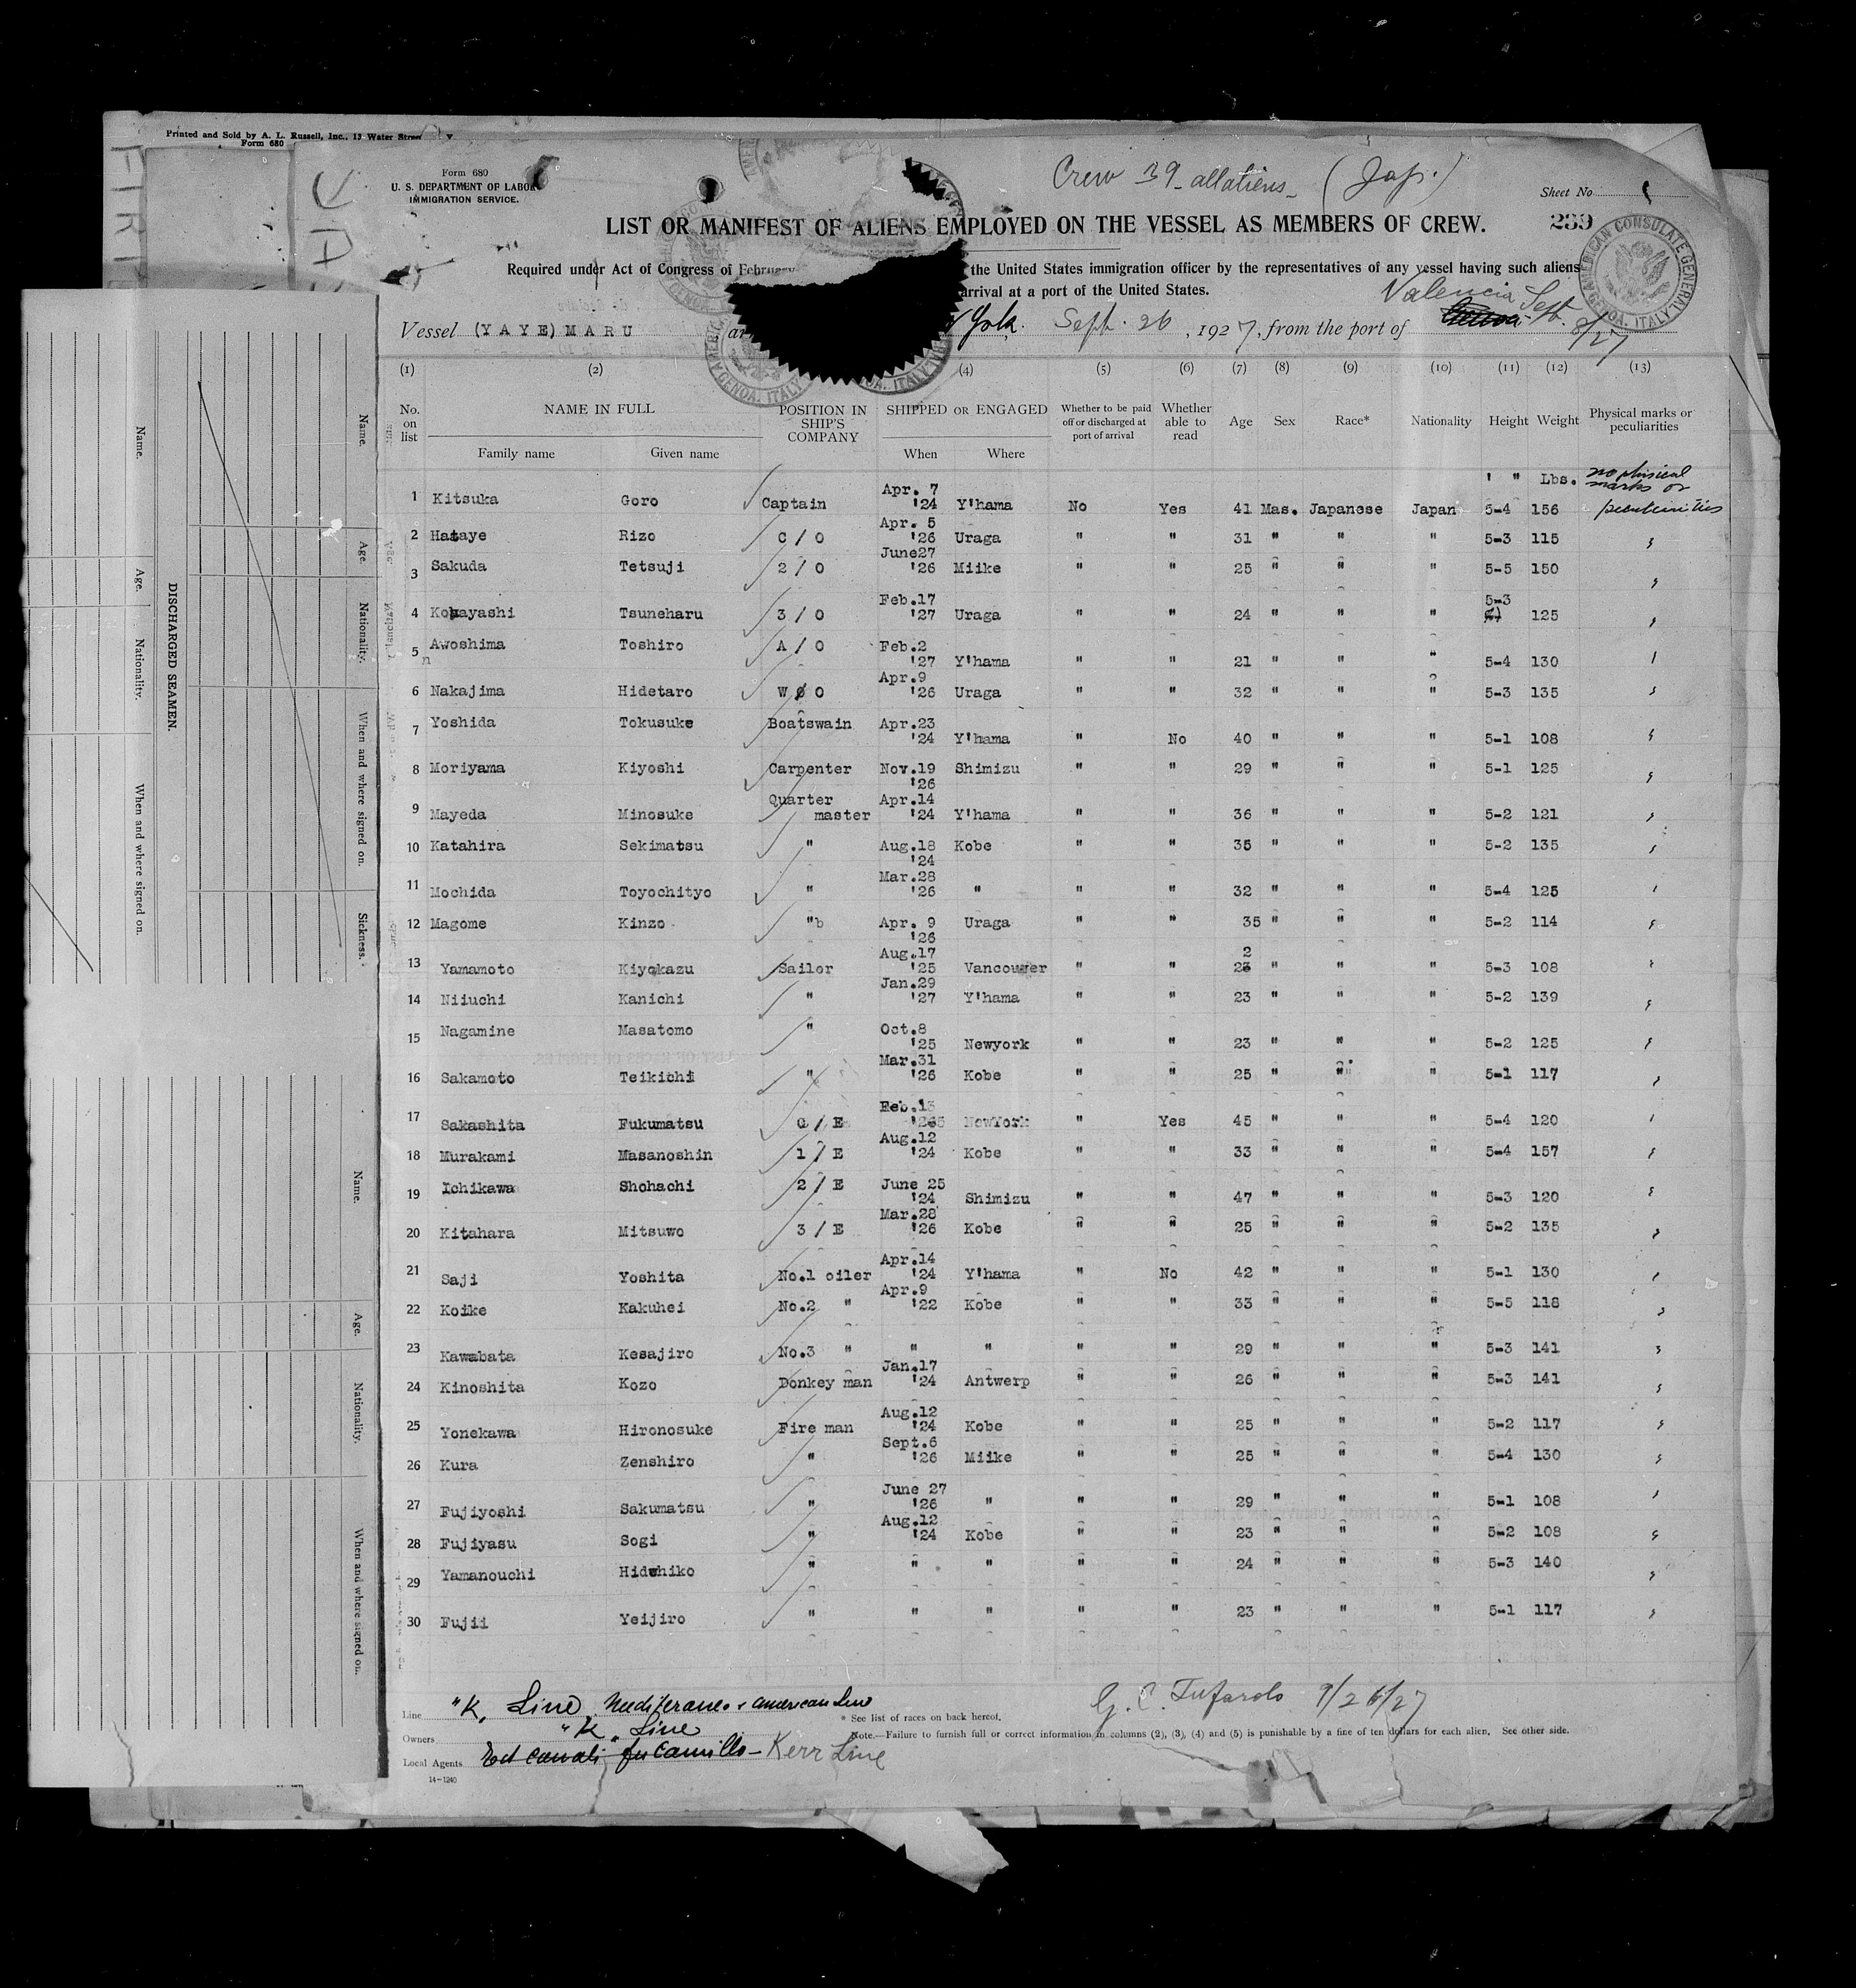 Printed and Sold by A. L. Russell, Inc., 13 Water Street
Form 680
Form 680
U. S. DEPARTMENT OF LABOR
IMMIGRATION SERVICE.
Crew 39 - all aliens - (Jap.)
Sheet No.
LIST OR MANIFEST OF ALIENS EMPLOYED ON THE VESSEL AS MEMBERS OF CREW.
239
AMERICAN CONSULATE GENERAL GENOA, ITALY
Required under Act of Congress of February the United States immigration officer by the representatives of any vessel having such aliens
arrival at a port of the United States.
Vessel (YAYE) MARU York. Sept. 26, 1927, from the port of Valencia Sept. 8/27
(1) (2) (4) (5) (6) (7) (8) (9) (10) (11) (12) (13)
No. on list NAME IN FULL POSITION IN SHIP'S COMPANY SHIPPED OR ENGAGED Whether to be paid off or discharged at port of arrival Whether able to read Age Sex Race* Nationality Height Weight Physical marks or peculiarities
Family name Given name When Where
' " Lbs. no phisical marks or
1 Kitsuka Goro Captain Apr. 7 '24 Y'hama No Yes 41 Mas. Japanese Japan 5-4 156 peculiarities
2 Hataye Rizo C / O Apr. 5 '26 Uraga " " 31 " " " 5-3 115
3 Sakuda Tetsuji 2 / O June27 '26 Miike " " 25 " " " 5-5 150
4 Kobayashi Tsuneharu 3 / O Feb.17 '27 Uraga " " 24 " " " 5-3 125
5 Awoshima Toshiro A / O Feb.2 '27 Y'hama " " 21 " " " 5-4 130
6 Nakajima Hidetaro W O Apr.9 '26 Uraga " " 32 " " " 5-3 135
7 Yoshida Tokusuke Boatswain Apr.23 '24 Y'hama " No 40 " " " 5-1 108
8 Moriyama Kiyoshi Carpenter Nov.19 '26 Shimizu " " 29 " " " 5-1 125
9 Mayeda Minosuke Quarter master Apr.14 '24 Y'hama " " 36 " " " 5-2 121
10 Katahira Sekimatsu " Aug.18 '24 Kobe " " 35 " " " 5-2 135
11 Mochida Toyochityo " Mar.28 '26 " " " 32 " " " 5-4 125
12 Magome Kinzo "b Apr. 9 '26 Uraga " " 35 " " " 5-2 114
13 Yamamoto Kiyokazu Sailor Aug.17 '25 Vancouver " " 22 " " " 5-3 108
14 Niiuchi Kanichi " Jan.29 '27 Y'hama " " 23 " " " 5-2 139
15 Nagamine Masatomo " Oct.8 '25 Newyork " " 23 " " " 5-2 125
16 Sakamoto Teikichi " Mar.31 '26 Kobe " " 25 " " " 5-1 117
17 Sakashita Fukumatsu / E Feb.13 NewYork " Yes 45 " " " 5-4 120
18 Murakami Masanoshin 1 / E Aug.12 '24 Kobe " " 33 " " " 5-4 157
19 Ichikawa Shohachi 2 / E June 25 '24 Shimizu " " 47 " " " 5-3 120
20 Kitahara Mitsuwo 3 / E Mar.28 '26 Kobe " " 25 " " " 5-2 135
21 Saji Yoshita No.1 oiler Apr.14 '24 Y'hama " No 42 " " " 5-1 130
22 Koike Kakuhei No.2 " Apr.9 '22 Kobe " " 33 " " " 5-5 118
23 Kawabata Kesajiro No.3 " " " " " 29 " " " 5-3 141
24 Kinoshita Kozo Donkey man Jan.17 '24 Antwerp " " 26 " " " 5-3 141
25 Yonekawa Hironosuke Fire man Aug.12 '24 Kobe " " 25 " " " 5-2 117
26 Kura Zenshiro " Sept.6 '26 Miike " " 25 " " " 5-4 130
27 Fujiyoshi Sakumatsu " June 27 '26 " " " 29 " " " 5-1 108
28 Fujiyasu Sogi " Aug.12 '24 Kobe " " 23 " " " 5-2 108
29 Yamanouchi Hidehiko " " " " " 24 " " " 5-3 140
30 Fujii Yeijiro " " " " " 23 " " " 5-1 117
Line "K" Line Mediteraneo & american Line
* See list of races on back hereof.
G. C. Tufarolo 9/26/27
Owners "K" Line
Note.—Failure to furnish full or correct information in columns (2), (3), (4) and (5) is punishable by a fine of ten dollars for each alien. See other side.
Local Agents Kerr Line
14-1240
DISCHARGED SEAMEN.
Name. Age. Nationality. When and where signed on.
Name. Age. Nationality. When and where signed on. Sickness.
Name. Age. Nationality. When and where signed on.